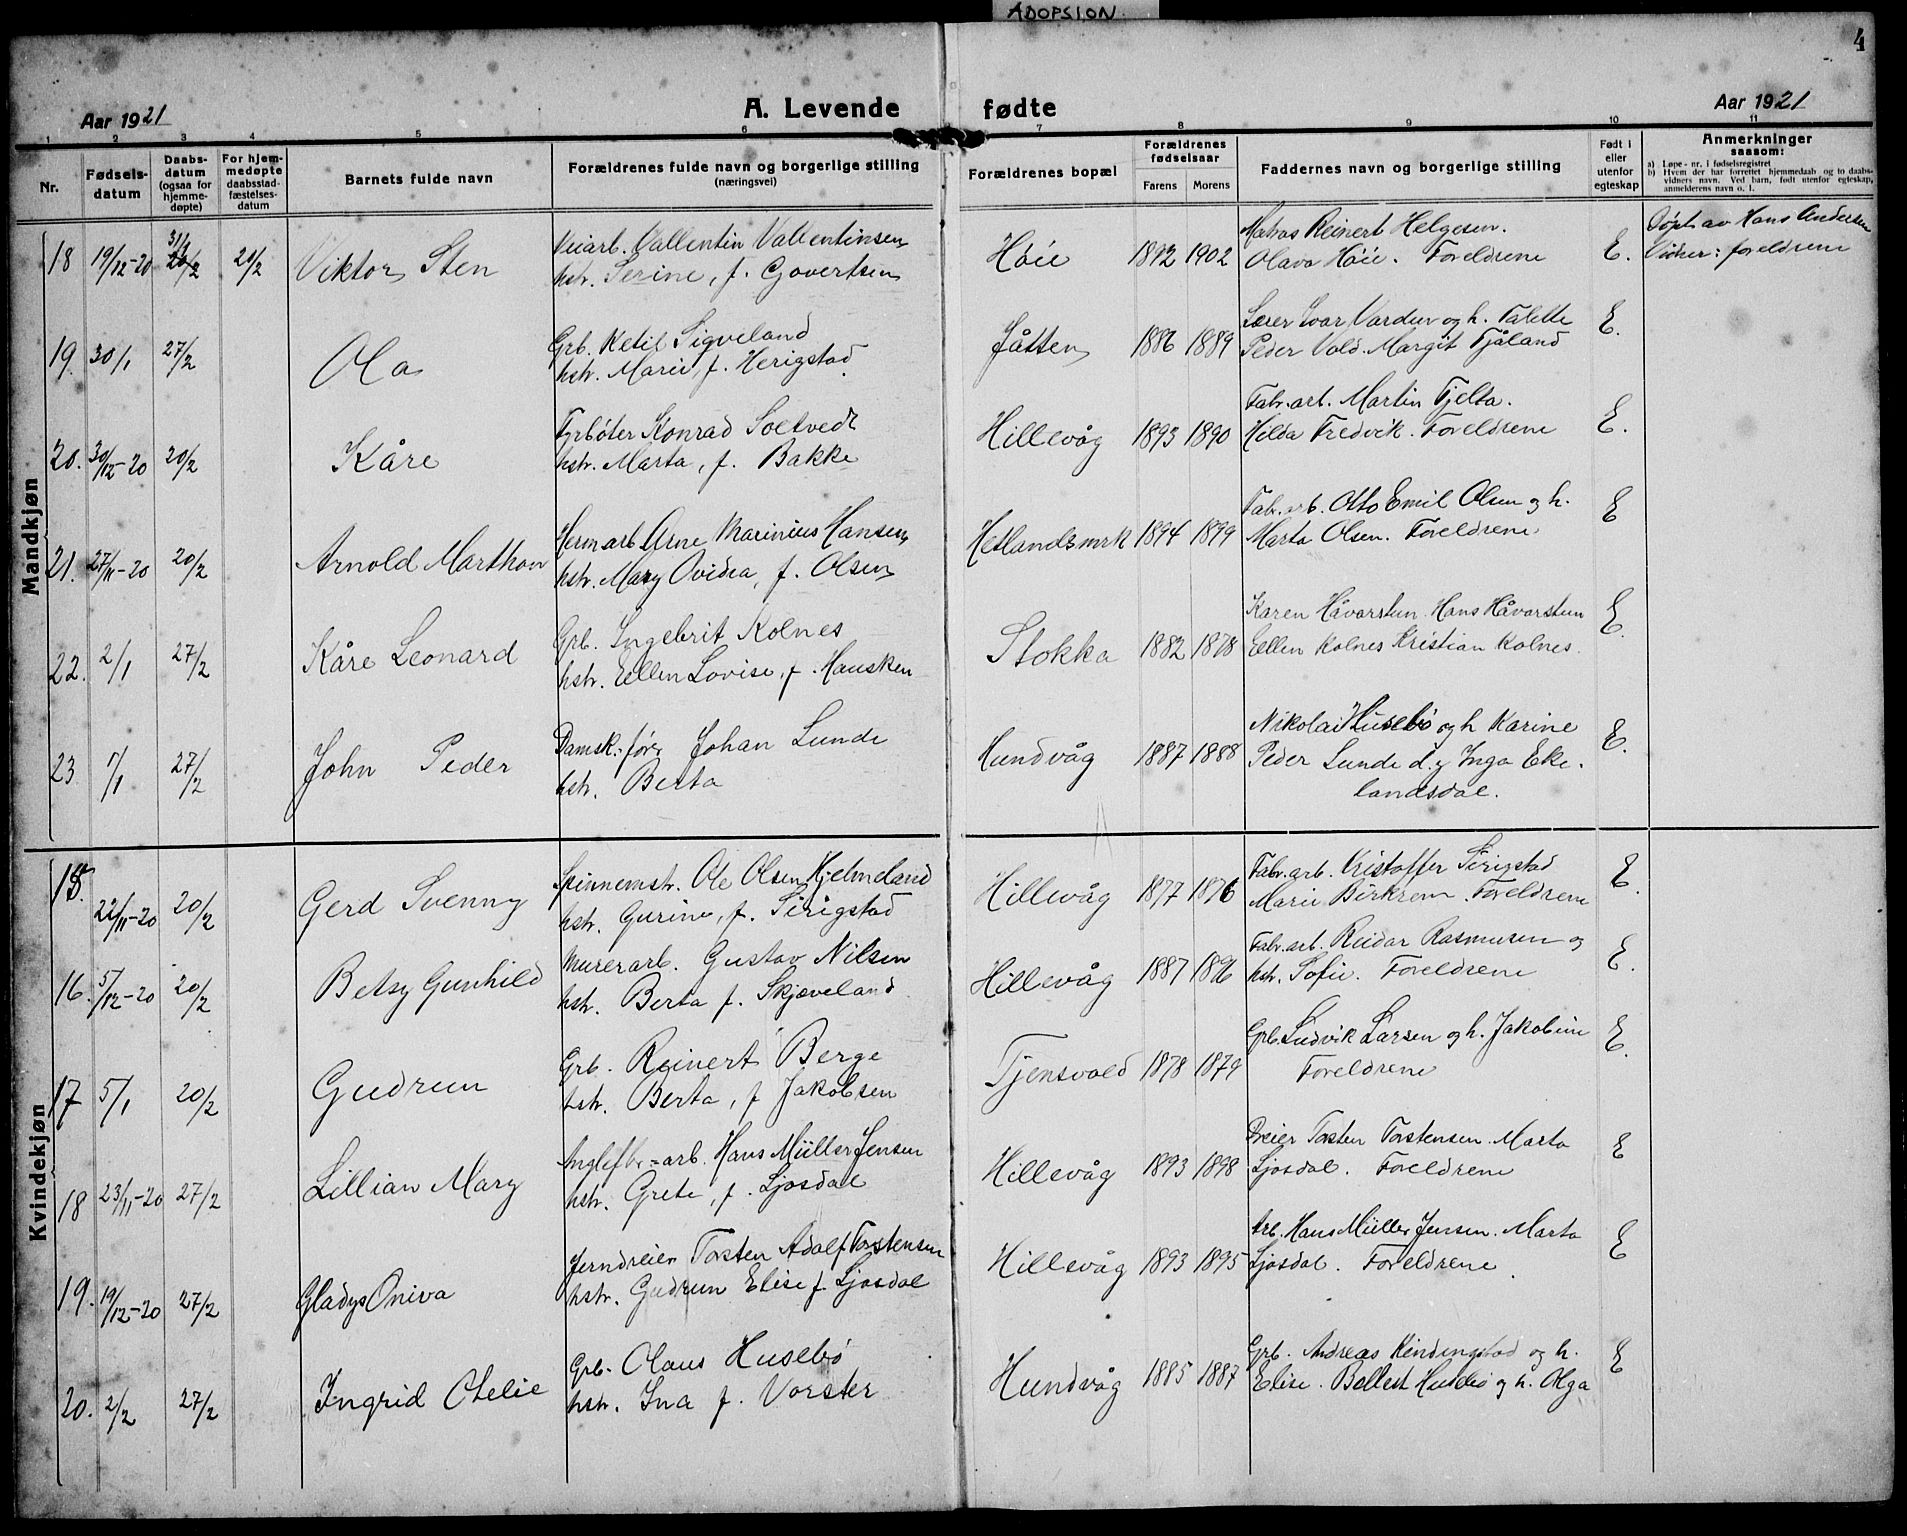 ADOPSION.
4
Aar 1921 A. Levende fødte Aar 1921
1 2 3 4 5 6 7 8 9 10 11
Nr. Fødselsdatum Daabsdatum (ogsaa for hjemmedøpte) For hjemmedøpte daabsstadfæstelsesdatum Barnets fulde navn Forældrenes fulde navn og borgerlige stilling (næringsvei) Forældrenes bopæl Forældrenes fødselsaar Farens Morens Faddernes navn og borgerlige stilling Født i eller utenfor egteskap Anmerkninger saasom:
a) Løpe-nr. i fødselsregistret
b) Hvem der har forrettet hjemmedaab og to daabsvidners navn. Ved barn, født utenfor egteskap, anmelderens navn o. l.
Mandkjøn
18 19/12-20 31/1 20/2 20/2 Viktor Sten Veiarb. Vallentin Vallentinsen
hstr. Serine, f. Govertsen Höie 1892 1902 Matros Reinert Helgesen.
Olava Höie. Foreldrene E. Döpt av Hans Andersen
Vidner: foreldrene
19. 30/1 27/2 Ola Grb. Ketil Sigveland
hstr. Marie, f. Herigstad. Jåtten 1886 1889 Lærer Ivar Vardun og h. Talette
Peder Vold. Margit Tjåland E.
20. 30/12-20 20/2 Kåre Fyrböter Konrad Soltvedt
hstr. Marta, f. Bakke Hillevåg 1893 1890 Fabr.arb. Martin Fjelta.
Hilda Fredvik. Foreldrene E.
21. 27/11-20 20/2 Arnold Marthon Hermarb. Arne Marinius Hansen
hstr. Mary Ovidia, f. Olsen Hetlandsmrk 1894 1899 Fabr.arb. Otto Emil Olsen og h.
Marta Olsen. Foreldrene E
22. 2/1 27/2 Kåre Leonard Grb. Ingebrit Kolnes
hstr. Ellen Lovise, f. Hausken Stokka 1882 1878 Karen Håvarstun. Hans Håvarstun
Ellen Kolnes Kristian Kolnes. E.
23 7/1 27/2 John Peder Damsk.-förer Johan Lunde
hstr. Berta Hundvåg 1887 1888 Nikolai Husebö og h Karine
Peder Lunde d.y Inga Eke-
landsdal. E.
Kvindekjøn
15. 22/11-20 20/2 Gerd Svenny Spinnemstr. Ole Olsen Hjelmeland
hstr. Gurine, f. Sirigstad Hillevåg 1877 1876 Fabr.arb. Kristoffer Sirigstad
Marie Birkrem. Foreldrene E.
16. 5/12-20 20/2 Betsy Gunhild Murerarb. Gustav Nilsen
hstr. Berta f. Skjæveland Hillevåg 1887 1896 Fabr.arb. Reidar Rasmusen og
hstr. Sofie. Foreldrene E.
17 5/1 20/2 Gudrun Grb. Reinert Berge
hstr. Berta, f Jakobsen Tjensvold 1878 1879 Grb. Ludvik Larsen og h. Jakobine
Foreldrene E.
18 23/11-20 27/2 Lillian Mary Anglefbr-arb. Hans Müller Jensen
hstr. Grete, f. Ljosdal Hillevåg 1893 1898 Dreier Torsten Torstensen. Marta
Ljosdal. Foreldrene E
19. 19/12-20 27/2 Gladys Oniva Jerndreier Torsten Adolf Torstensen
hstr. Gudrun Elise f. Ljosdal Hillevåg 1893 1895 Arb. Hans Müller Jensen. Marta
Ljosdal. Foreldrene. E
20. 2/2 27/2 Ingrid Otelie Grb. Olaus Husebö
hstr. Ina f. Vorster Hundvåg 1885 1887 Grb. Andreas Kindingstad og h.
Elise. Bollest Husebö og h. Olga E